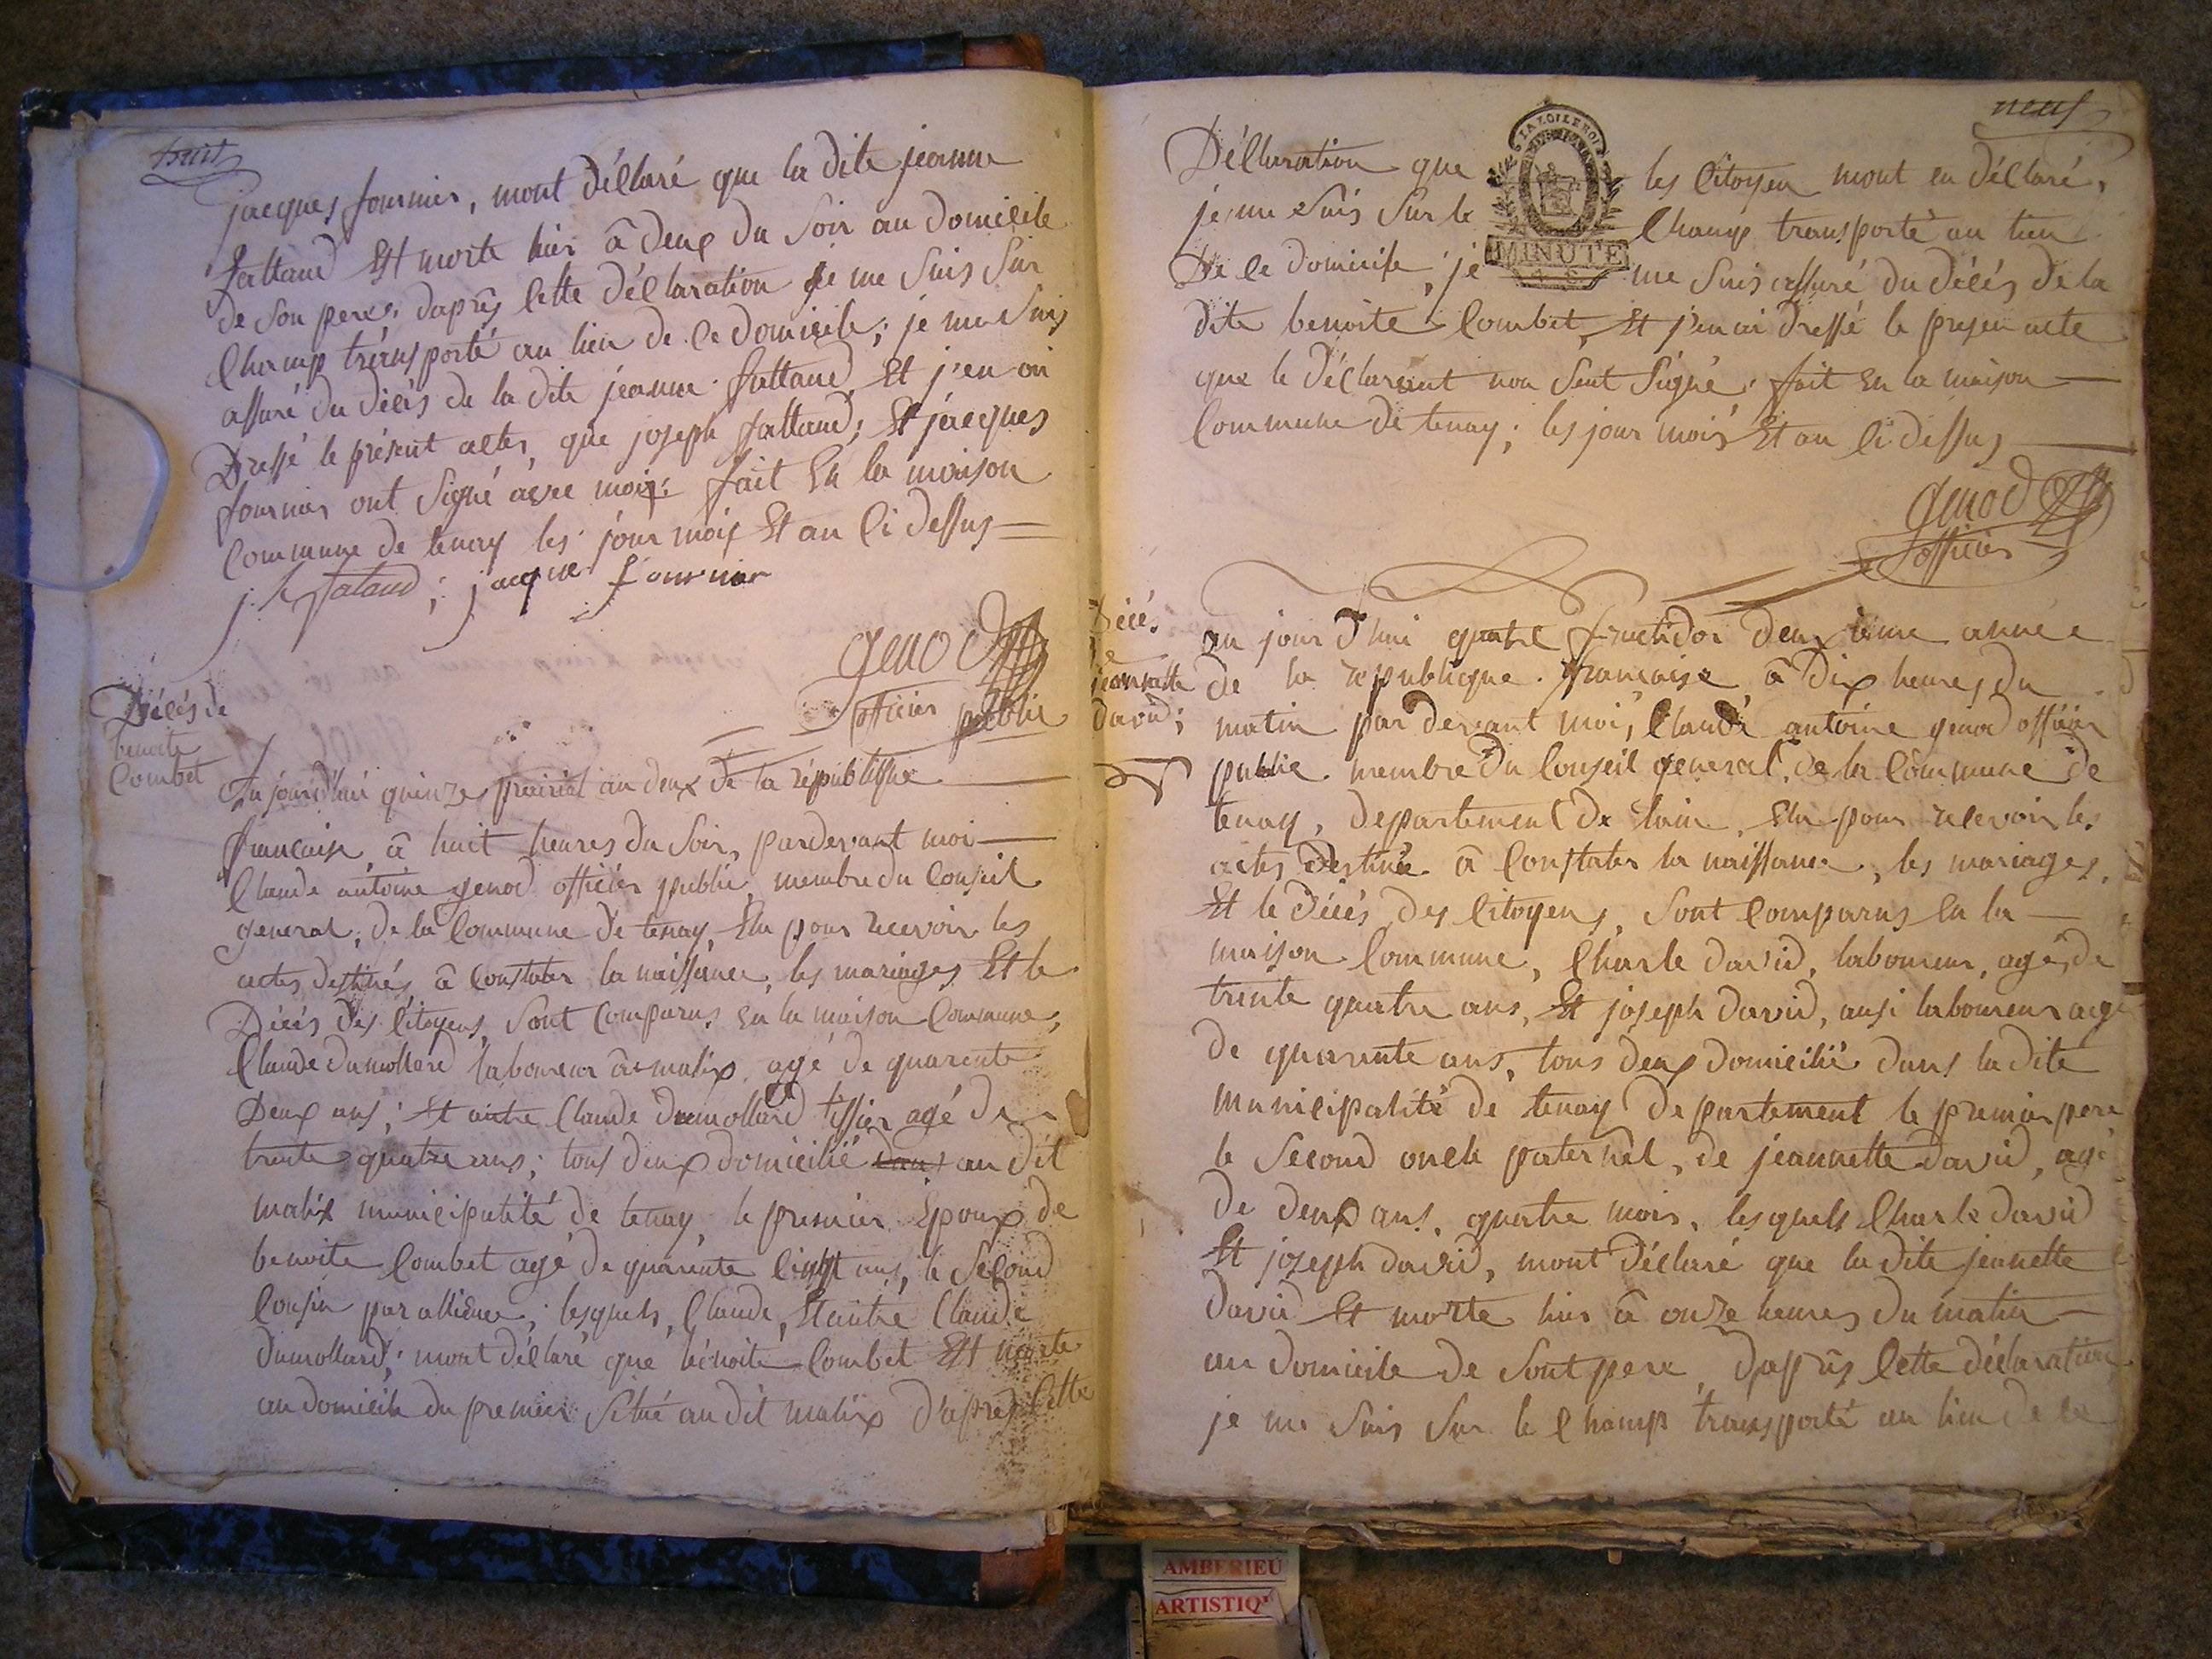 huit
jacques fournier, mont déclaré que la dite jeanne
fattaud Et morte hier â deux du Soir au domicile
de Son pere; daprês Cette déclaration je me Suis Sur
Champ trénsporté au lieu de Ce domicile; je me Suis
assuré du décés de la dite jeanne fattaud, Et j'en ai
Dressé le présent actes, que joseph fattaud; Et jacques
fournier ont Signé avec moi; fait En la maison
Commune de tenay les jour mois Et an Ci dessus
j. h fataud; jacque fournier
genod
officier public
Décés de
benoite
Combet
Au jourd'hui quinze prairial an deux de la républiqu
francaise, â huit heures du Soir, pardevant moi
Claude antoine genod officier public, membre du Conseil
general, de la Commune de tenay, Elu pour recevoir les
actes destinés â Constater la naissance, les mariages Et le
Décés des Citoyens, Sont Comparus En la maison Commune,
Claude dumollard laboureur â malix, agé de quarente
Deux ans; Et autre Claude dumollard tissier agé de
trente quatre ans; tous deux domicilié dans au dit
malix municipalité de tenay, le premier Epoux de
benoite Combet agé de quarente Cinqt ans, le Second
Cousin par alliance; lesquels, Claude, Et autre Claude
dumollard; mont déclaré que bénoite Combet Est morte
au domicile du premier Situé au dit malix d'aprés Cette
neuf
Déclaration que les Citoyen mont en déclaré,
je me Suis Sur le Champ transporté au lieu
De Ce domicile; je me Suis assuré du décés de la
dite benoite Combet, Et j'en ai dressé le presen acte
que le déclarant non Sent Signé; fait En la maison
Commune de tenay; les jour mois Et an Ci dessus
LA LOI LE ROI
MINUTE
genod
officier
Décé.
jeannette
david;
au jour d'hui quatre fructidor deuxieme année
de la republique francaise, â dix heures du
matin par devant moi, Claude antoine genod officier
public membre du Conseil general, de la Commune de
tenay, departement de lain, Elu pour recevoir les
actes destiné â Constater la naissance, les mariages,
Et le décés, des Citoyens, Sont Comparus En la
maison Commune, Charle david, laboureur, agé de
trente quatre ans, Et joseph david, ausi laboureur agé
de quarente ans, tous deux domicilié dans la dite
municipalité de tenay departement le premier pere
le Second oncle paternel, de jeannette david, agé
de deux ans, quatre mois, lesquels Charle david
Et joseph david, mont déclaré que la dite jeanette
david Et morte hier â onze heures du matin
au domicile de Sont pere, d'aprês Cette déclaration
je me Suis Sur le Champ transporté au lieu de Ce
AMBERIEU
ARTISTIQ'